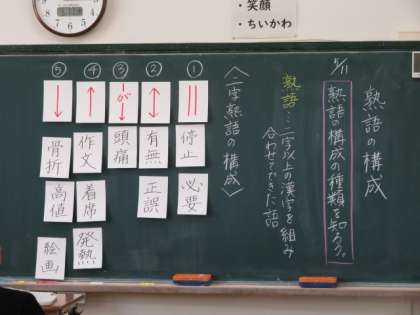 ・笑顔
・ちいかわ
熟語の構成
5/11
熟語の構成の種類を知ろう。
熟語…二字以上の漢字を組み
合わせてできた語
〈二字熟語の構成〉
①
停止
必要
②
有無
正誤
③
が
頭痛
④
作文
着席
発熱
⑤
骨折
高値
絵画